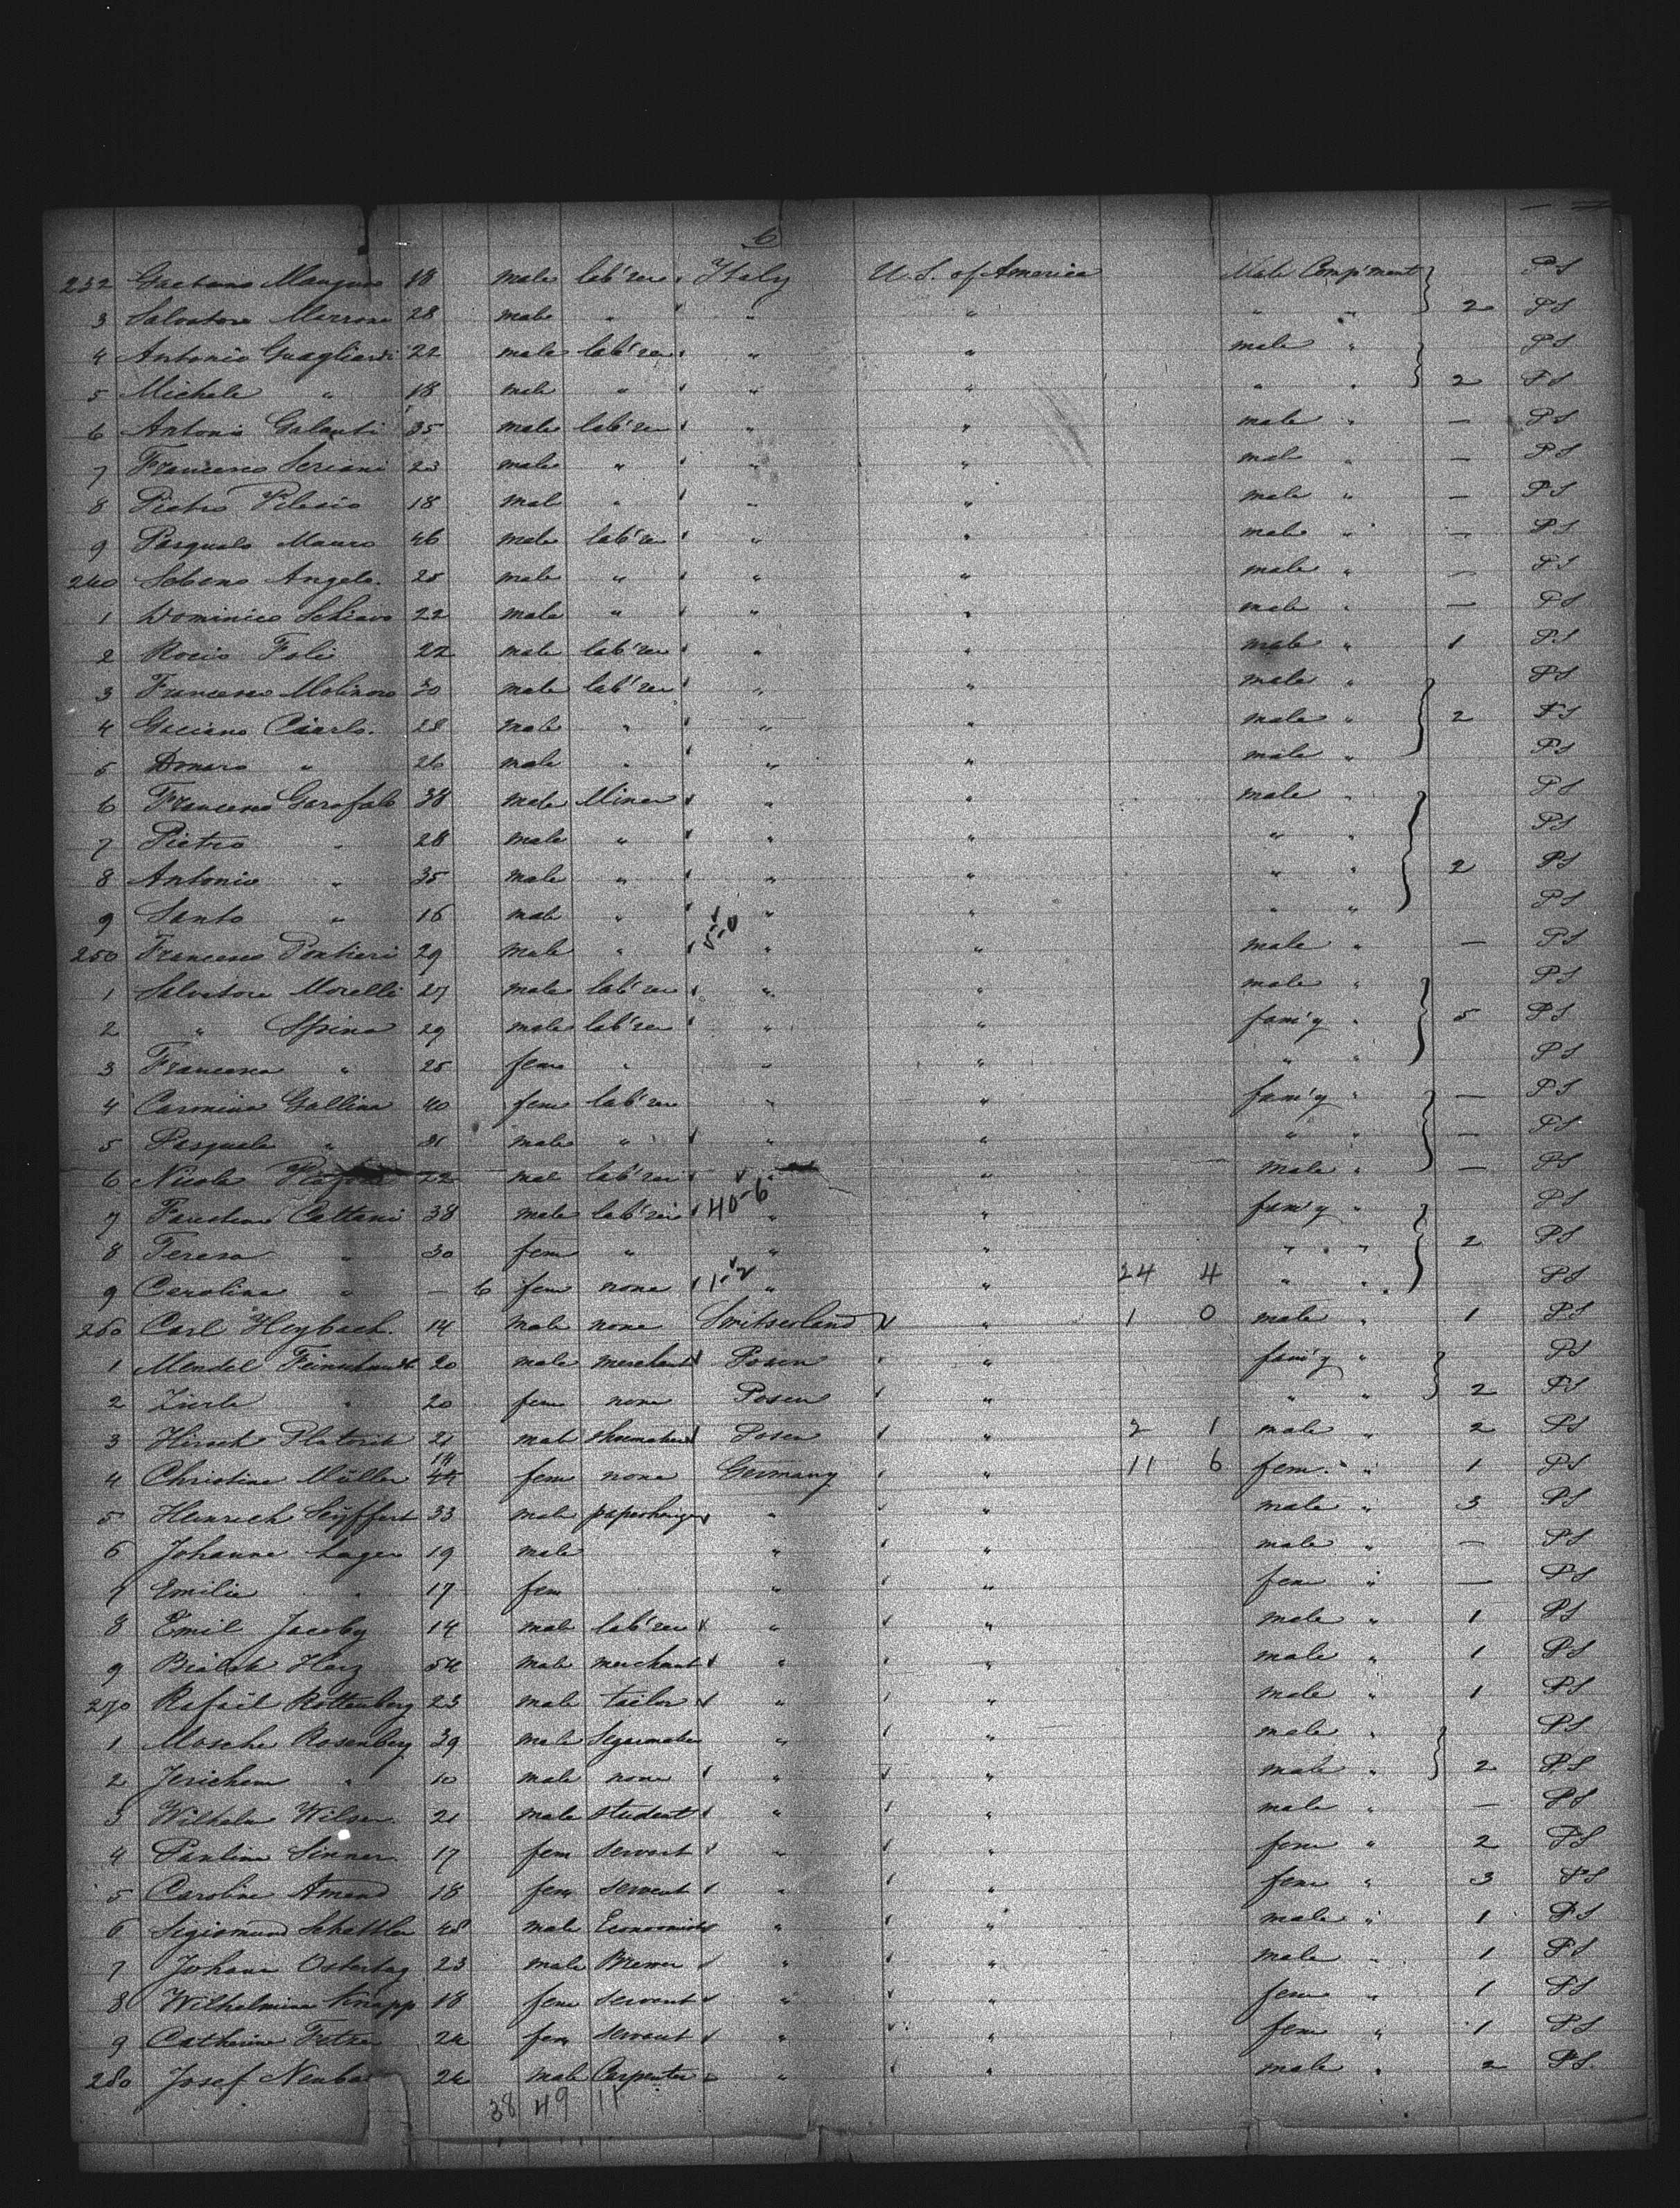 6
232 Gaetano Mangano 18 male lab'rer Italy U.S. of America Male Comp'ment PS
3 Salvatore Marrone 28 male " " " " " 2 PS
4 Antonio Guagliardi 22 male lab'rer " " male " PS
5 Michele " 18 male " " " " " 2 PS
6 Antonio Galanti 35 male lab'rer " " male " — PS
7 Francesco Seriani 23 male " " " male " — PS
8 Pietro 18 male " " " male " — PS
9 Pasquale Mauro 46 male lab'rer " " male " — PS
240 Angelo. 25 male " " " male " — PS
1 Dominico Schiavo 22 male " " " male " — PS
2 Rocio Foli 22 male lab'rer " " male " 1 PS
3 Francesco Molinaro 30 male lab'rer " " male " PS
4 Gaciano Ciarlo. 28 male " " " male " 2 PS
5 Donaro " 26 male " " " male " PS
6 Francesco Garofalo 38 male Miner " " male " PS
7 Pietro " 28 male " " " " " PS
8 Antonio " 35 male " " " " " 2 PS
9 Santo " 16 male " " " " " PS
250 Francesco Pontieri 29 male " " " male " — PS
1 Salvatore Morelli 27 male lab'rer " " male " PS
2 " Spina 29 male lab'rer " " fam'y " 5 PS
3 Francesca " 25 fem " " " " " PS
4 Carmina Gallina 40 fem lab'rer " " fam'y " — PS
5 Pasquale " 21 male " " " " " — PS
6 Nicola 22 male lab'rer " " male " — PS
7 Cattani 38 male lab'rer 40-6 " " fam'y " PS
8 Teresa " 30 fem " " " " " 2 PS
9 Carolina " — 6 fem none 1-2 " " 24 4 " " PS
260 Carl Heybach. 14 male none Switserland " 1 0 male " 1 PS
1 Mendel 20 male merchant Posen " fam'y " PS
2 Zierle " 20 fem none Posen " " " 2 PS
3 Hirsch Platorik 21 male shoemaker Posen " 2 1 male " 2 PS
4 Christine Müller 19 fem none Germany " 11 6 fem. " 1 PS
5 Heinrich Seyffert 33 male paperhanger " " male " 3 PS
6 Johanne Lager 19 male " " male " — PS
7 Emilie " 17 fem " " fem " — PS
8 Emil Jacoby 14 male lab'rer " " male " 1 PS
9 Bialek Herz 54 male merchant " " male " 1 PS
270 Rafael Rottenberg 23 male tailor " " male " 1 PS
1 Mosche Rosenberg 39 male Segarmaker " " male " PS
2 Jerichem " 10 male none " " male " 2 PS
3 Wilhelm Wilsen. 21 male student " " male " — PS
4 Pauline Sinner. 17 fem servant " " fem " 2 PS
5 Caroline Amend 18 fem servent " " fem " 3 PS
6 Segismund Schettler 48 male Economist " " male " 1 PS
7 Johann Ostertag 23 male Brewer " " male " 1 PS
8 Wilhelmine Knapp 18 fem servent " " fem " 1 PS
9 Catherine 24 fem servant " " fem " 1 PS
280 Josef 24 male Carpenter " " male " 2 PS
38 49 11